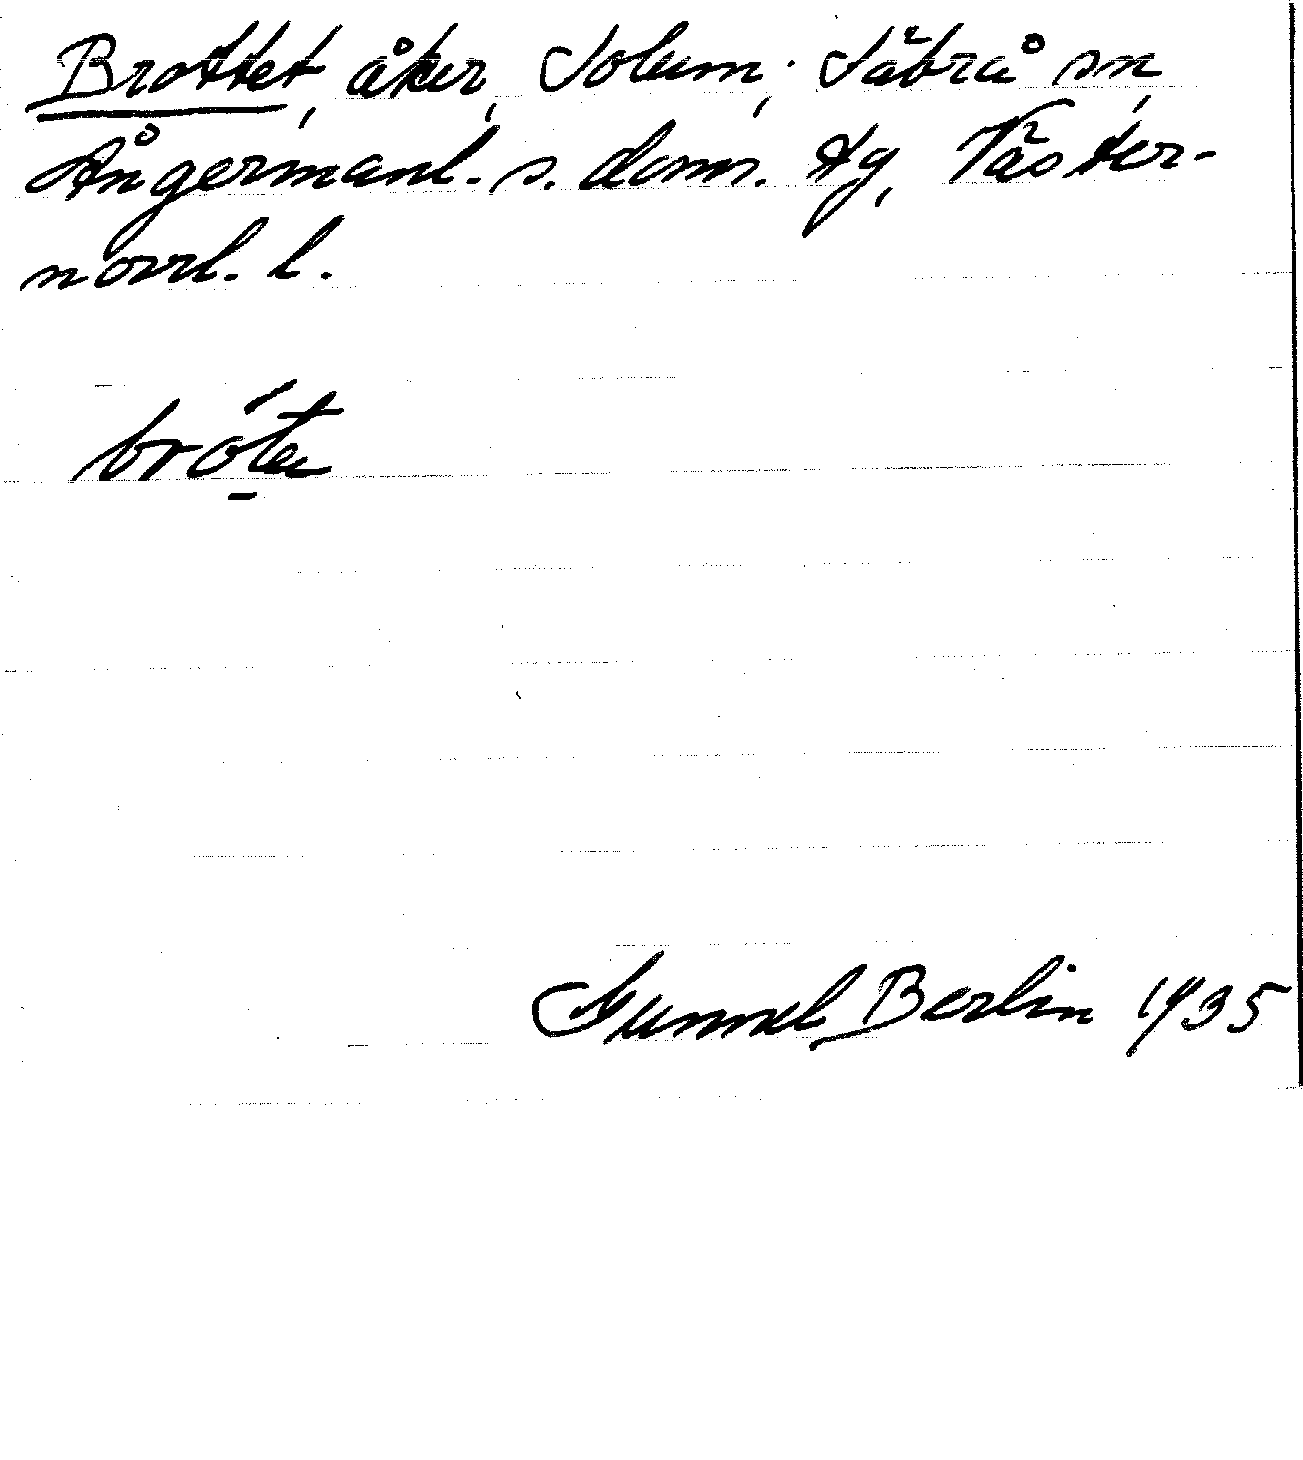 Brottet, åker, Solum, Säbrå sn,
Ångermanl. s. doms. tg, Väster-
norrl. l.
bró̱ta
Gunnel Berlin 1935